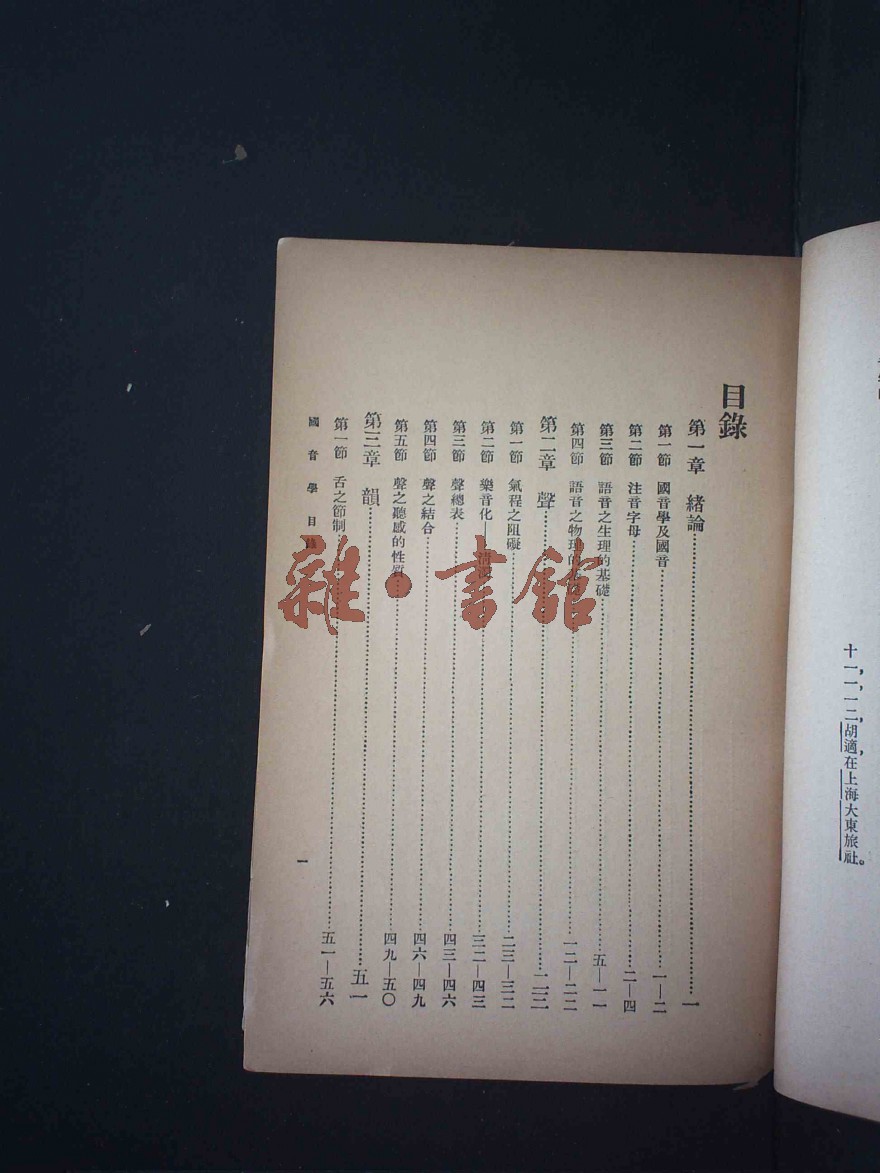 十一，一，一二，胡適在上海大東旅社。
目錄
第一章 緒論……一
第一節 國音學及國音……一—二
第二節 注音字母……二—四
第三節 語音之生理的基礎……五—一一
第四節 語音之物理的基礎……一二—二二
第二章 聲……二三
第一節 氣程之阻礙……二三—三二
第二節 樂音化—清濁……三二—四三
第三節 聲總表……四三—四六
第四節 聲之結合……四六—四九
第五節 聲之聽感的性質……四九—五〇
第三章 韻……五一
第一節 舌之節制……五一—五六
國音學 目錄
一
雜·書館